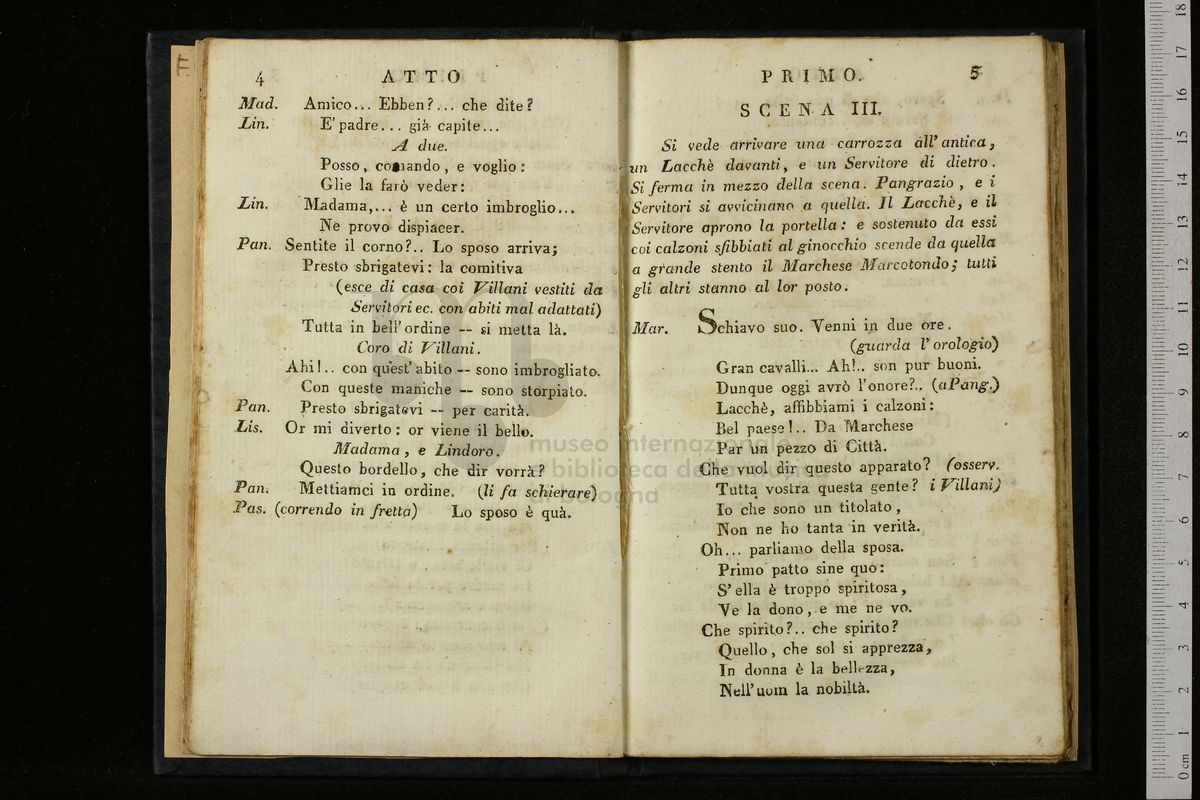 F.
4 ATTO
Mad. Amico... Ebben?... che dite?
Lin. E' padre... già capite...
A due.
Posso, comando, e voglio:
Glie la farò veder:
Lin. Madama,... è un certo imbroglio...
Ne provo dispiacer.
Pan. Sentite il corno?.. Lo sposo arriva;
Presto sbrigatevi: la comitiva
(esce di casa coi Villani vestiti da
Servitori ec. con abiti mal adattati)
Tutta in bell' ordine -- si metta là.
Coro di Villani.
Ahi!.. con quest' abito -- sono imbrogliato.
Con queste maniche -- sono storpiato.
Pan. Presto sbrigatevi -- per carità.
Lis. Or mi diverto: or viene il bello.
Madama, e Lindoro.
Questo bordello, che dir vorrà?
Pan. Mettiamci in ordine. (li fa schierare)
Pas. (correndo in fretta) Lo sposo è quà.
PRIMO. 5
SCENA III.
Si vede arrivare una carrozza all' antica,
un Lacchè davanti, e un Servitore di dietro.
Si ferma in mezzo della scena. Pangrazio, e i
Servitori si avvicinano a quella. Il Lacchè, e il
Servitore aprono la portella: e sostenuto da essi
coi calzoni sfibbiati al ginocchio scende da quella
a grande stento il Marchese Marcotondo; tutti
gli altri stanno al lor posto.
Mar. Schiavo suo. Venni in due ore.
(guarda l' orologio)
Gran cavalli... Ah!.. son pur buoni.
Dunque oggi avrò l'onore?.. (a Pang.)
Lacchè, affibbiami i calzoni:
Bel paese!.. Da Marchese
Par un pezzo di Città.
Che vuol dir questo apparato? (osserv.
Tutta vostra questa gente? i Villani)
Io che sono un titolato,
Non ne ho tanta in verità.
Oh... parliamo della sposa.
Primo patto sine quo:
S' ella è troppo spiritosa,
Ve la dono, e me ne vo.
Che spirito?.. che spirito?
Quello, che sol si apprezza,
In donna è la bellezza,
Nell' uom la nobiltà.
museo internazionale
e biblioteca della musica
di bologna
0 cm 1 2 3 4 5 6 7 8 9 10 11 12 13 14 15 16 17 18